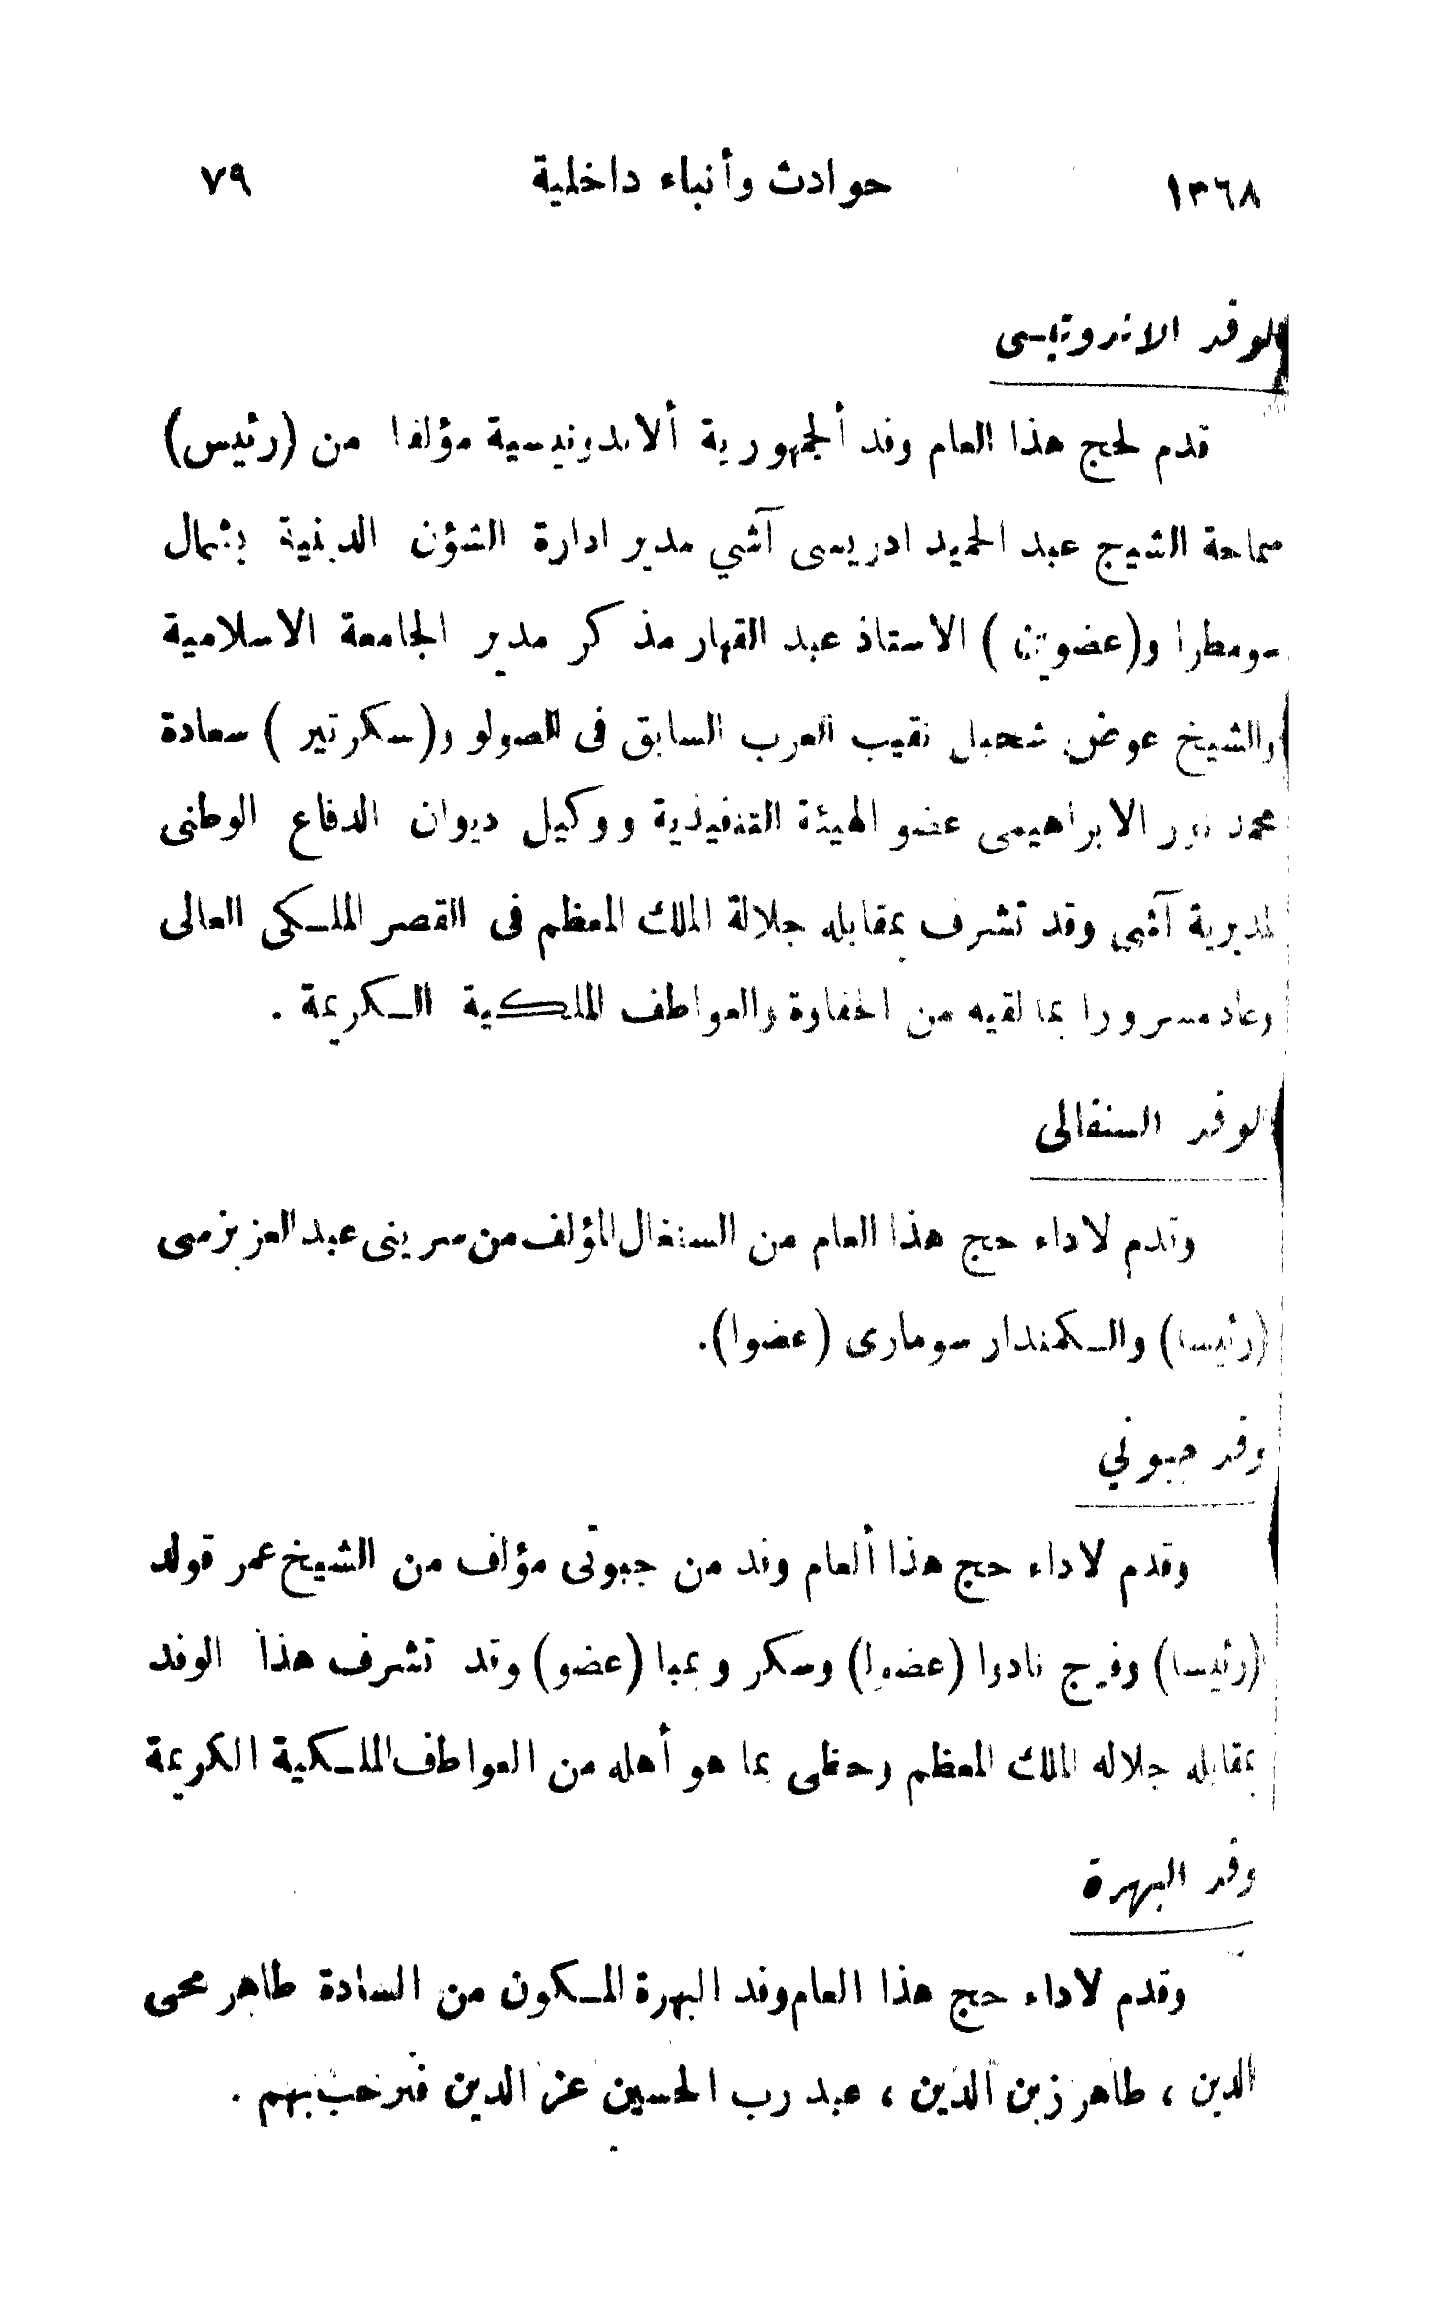 ١٣٦٨ حوادث وأنباء داخلية ٧٩
الوفد الاندونيسى
قدم لحج هذا العام وفد ألجمهورية ألاندونيسية مؤلفا من (رئيس)
سماحة الشيخ عبد الحميد ادريسى آشي مدير ادارة الشؤن الدينية بشمال
سومطرا و(عضوين) الاستاذ عبد القهار مذكر مدير الجامعة الاسلامية
والشيخ عوض شحبل نقيب العرب السابق فى الصولو و(سكرتير) سعادة
محمد نور الابراهيمى عضو الهيئة التنفيذية ووكيل ديوان الدفاع الوطنى
لمديرية آشى وقد تشرف بمقابله جلالة الملك المعظم فى القصر الملكى العالى
وعاد مسرورا بما لقيه من الحفاوة والعواطف الملكية الكريمة .
الوفد السنغالى
وقدم لاداء حج هذا العام من السنغال المؤلف من سرينى عبد العزيز سى
(رئيسا) والكمندار سومارى (عضوا).
وفد جيبوتي
وقدم لاداء حج هذا ألعام وفد من جبوتى مؤلف من الشيخ عمر قولد
(رئيسا) وفرج نادرا (عضوا) وسكر وبمبا (عضو) وقد تشرف هذا الوفد
بمقابله جلاله الملك المعظم وحظى بما هو أهله من العواطف الملكية الكريمة
وفد البهرة
وقدم لاداء حج هذا العام وفد البهرة المكون من السادة طاهر محى
الدين ، طاهر زين الدين ، عبد رب الحسين عز الدين فنرحب بهم .